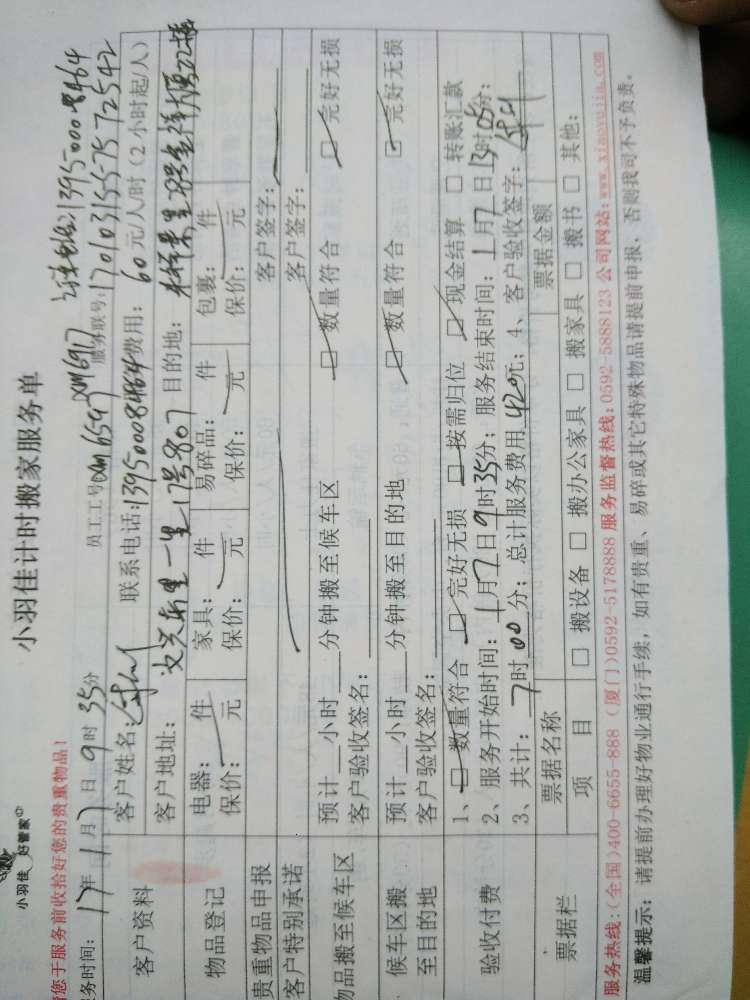 小羽佳 好管家
小羽佳计时搬家服务单
请您于服务前收拾好您的贵重物品!
服务时间: 17年 1月 7日 9时 35分 员工工号 服务联号: 17010315557572542
客户资料
客户姓名: 联系电话: 13950008464 费用: 60 元/人/时 (2小时起/人)
客户地址: 目的地:
物品登记
电器: 件 家具: 件 易碎品: 件 包裹: 件
保价: 元 保价: 元 保价: 元 保价: 元
贵重物品申报 客户签字:
客户特别承诺 客户签字:
物品搬至候车区
预计 小时 分钟搬至候车区 □ 数量符合 □ 完好无损
客户验收签名:
候车区搬至目的地
预计 小时 分钟搬至目的地 □ 数量符合 □ 完好无损
客户验收签名:
验收付费
1、□ 数量符合 □ 完好无损 □ 按需归位 □ 现金结算 □ 转账汇款
2、服务开始时间: 1月7日9时35分; 服务结束时间: 1月7日13时05分;
3、共计: 7时00分; 总计服务费用 420元; 4、客户验收签字:
票据栏
票据名称 票据金额
项 目 □ 搬设备 □ 搬办公家具 □ 搬家具 □ 搬书 □ 其他:
服务热线:(全国)400-6655-888 (厦门)0592-5178888 服务监督热线:0592-5888123 公司网站:www.xiaoyujia.com
温馨提示: 请提前办理好物业通行手续, 如有贵重、易碎或其它特殊物品请提前申报, 否则我司不予负责。